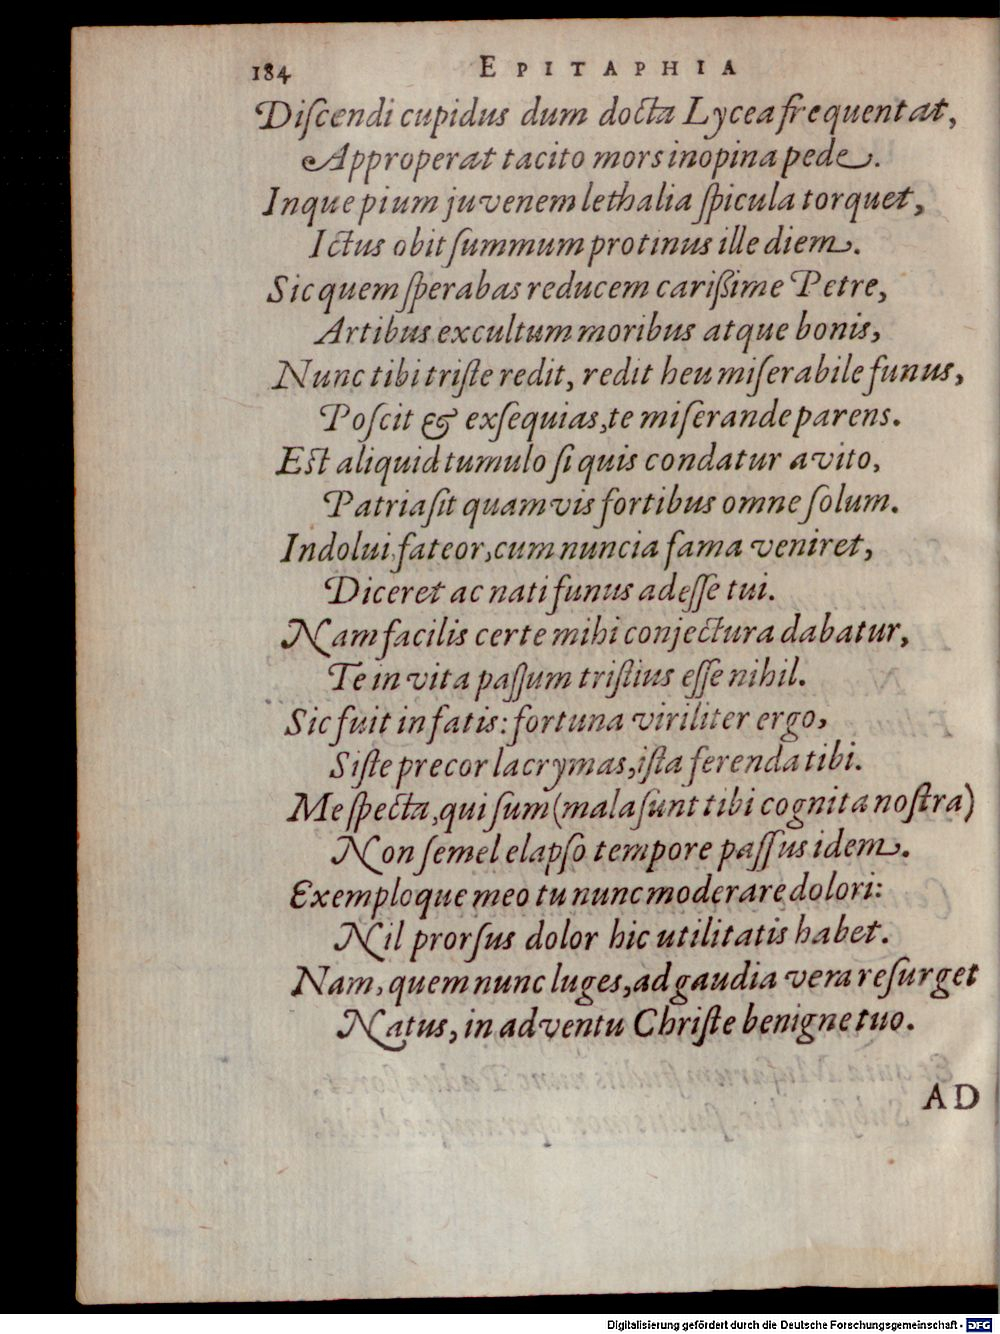 184 EPITAPHIA
Diſcendi cupidus dum docta Lycea frequentat,
Approperat tacito mors inopina pede.
Inque pium juvenem lethalia ſpicula torquet,
Ictus obit ſummum protinus ille diem.
Sic quem ſperabas reducem carißime Petre,
Artibus excultum moribus atque bonis,
Nunc tibi triſte redit, redit heu miſerabile funus,
Poſcit & exſequias, te miſerande parens.
Est aliquid tumulo ſi quis condatur avito,
Patria ſit quamvis fortibus omne ſolum.
Indolui, fateor, cum nuncia fama veniret,
Diceret ac nati funus adeſſe tui.
Nam facilis certe mihi conjectura dabatur,
Te in vita paſſum triſtius eſſe nihil.
Sic fuit in fatis: fortuna viriliter ergo,
Siſte precor lacrymas, iſta ferenda tibi.
Me ſpecta, qui ſum (mala ſunt tibi cognita noſtra)
Non ſemel elapſo tempore paſſus idem.
Exemploque meo tu nunc moderare dolori:
Nil prorſus dolor hic utilitatis habet.
Nam, quem nunc luges, ad gaudia vera reſurget
Natus, in adventu Chriſte benigne tuo.
AD
Digitalisierung gefördert durch die Deutsche Forschungsgemeinschaft - DFG